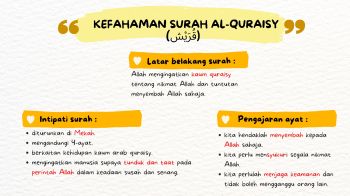 KEFAHAMAN SURAH AL-QURAISY
(قُرَيْش)
Latar belakang surah :
Allah mengingatkan kaum quraisy
tentang nikmat Allah dan tuntutan
menyembah Allah sahaja.
Intipati surah :
diturunkan di Mekah.
mengandungi 4-ayat.
berkaitan kehidupan kaum arab quraisy.
mengingatkan manusia supaya tunduk dan taat pada
perintah Allah dalam keadaan susah dan senang.
Pengajaran ayat :
kita hendaklah menyembah kepada
Allah sahaja.
kita perlu mensyukuri segala nikmat
Allah.
kita perlulah menjaga keamanan dan
tidak boleh mengganggu orang lain.